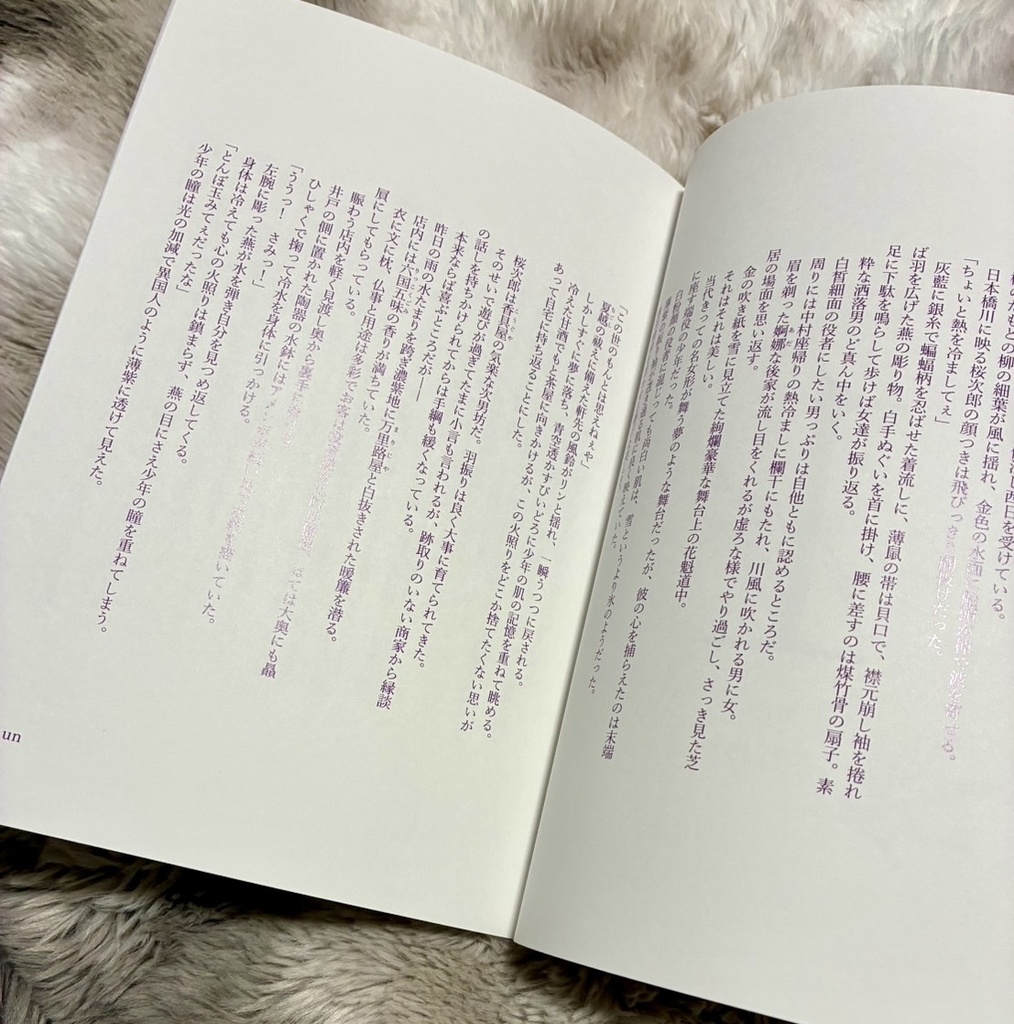 橋のたもとの柳の細葉が風に揺れ、金色の水面に
日本橋川に映る桜次郎の顔つきは飛びっきり
「ちょいと熱を冷ましてぇ」
灰藍に銀糸で蝙蝠柄を忍ばせた着流しに、薄鼠の帯は貝口で、襟元崩し袖を捲れ
ば羽を広げた燕の彫り物。白手ぬぐいを首に掛け、腰に差すのは煤竹骨の扇子。素
足に下駄を鳴らして歩けば女達が振り返る。
粋な洒落男のど真ん中をいく。
白皙細面の役者にしたい男っぷりは自他ともに認めるところだ。
周りには中村座帰りの熱冷ましに欄干にもたれ、川風に吹かれる男に女。
眉を剃った婀娜な後家が流し目をくれるが虚ろな様でやり過ごし、さっき見た芝
居の場面を思い返す。
金の吹き紙を雪に見立てた絢爛豪華な舞台上の花魁道中。
それはそれは美しい。
当代きっての名女形が舞う夢のような舞台だったが、彼の心を捕らえたのは末端
に座す端役の少年だった。
「この世のもんとは思えねぇや」
夏越の祓えに備えた軒先の風鈴がリンと揺れ、一瞬うつつに戻される。
しかしすぐに夢に落ち、青空透かすびいどろに少年の肌の記憶を重ねて眺める。
冷えた甘酒でもと茶屋に向きかけるが、この火照りをどこか捨てたくない思いが
あって自宅に持ち返ることにした。
桜次郎は香具屋の気楽な次男坊だ。羽振りは良く大事に育てられてきた。
そのせいで遊びが過ぎてたまに小言も言われるが、跡取りのいない商家から縁談
の話しを持ちかけられてからは手綱も緩くなっている。
本来ならば喜ぶところだが――
昨日の雨の水たまりを跨ぎ濃紫地に万里路屋と白抜きされた暖簾を潜る。
店内には六国五味の香りが満ちていた。
衣に文に枕、仏事と用途は多彩でお客は
屓にしてもらっている。
賑わう店内を軽く見渡し奥から裏手に
井戸の側に置かれた陶器の水鉢には
ひしゃくで掬って冷水を身体に引っかける。
「ううっ！　さみっ！」
左腕に彫った燕が水を弾き自分を見つめ返してくる。
身体は冷えても心の火照りは鎮まらず、燕の目にさえ少年の瞳を重ねてしまう。
「とんぼ玉みてぇだったな」
少年の瞳は光の加減で異国人のように薄紫に透けて見えた。
un